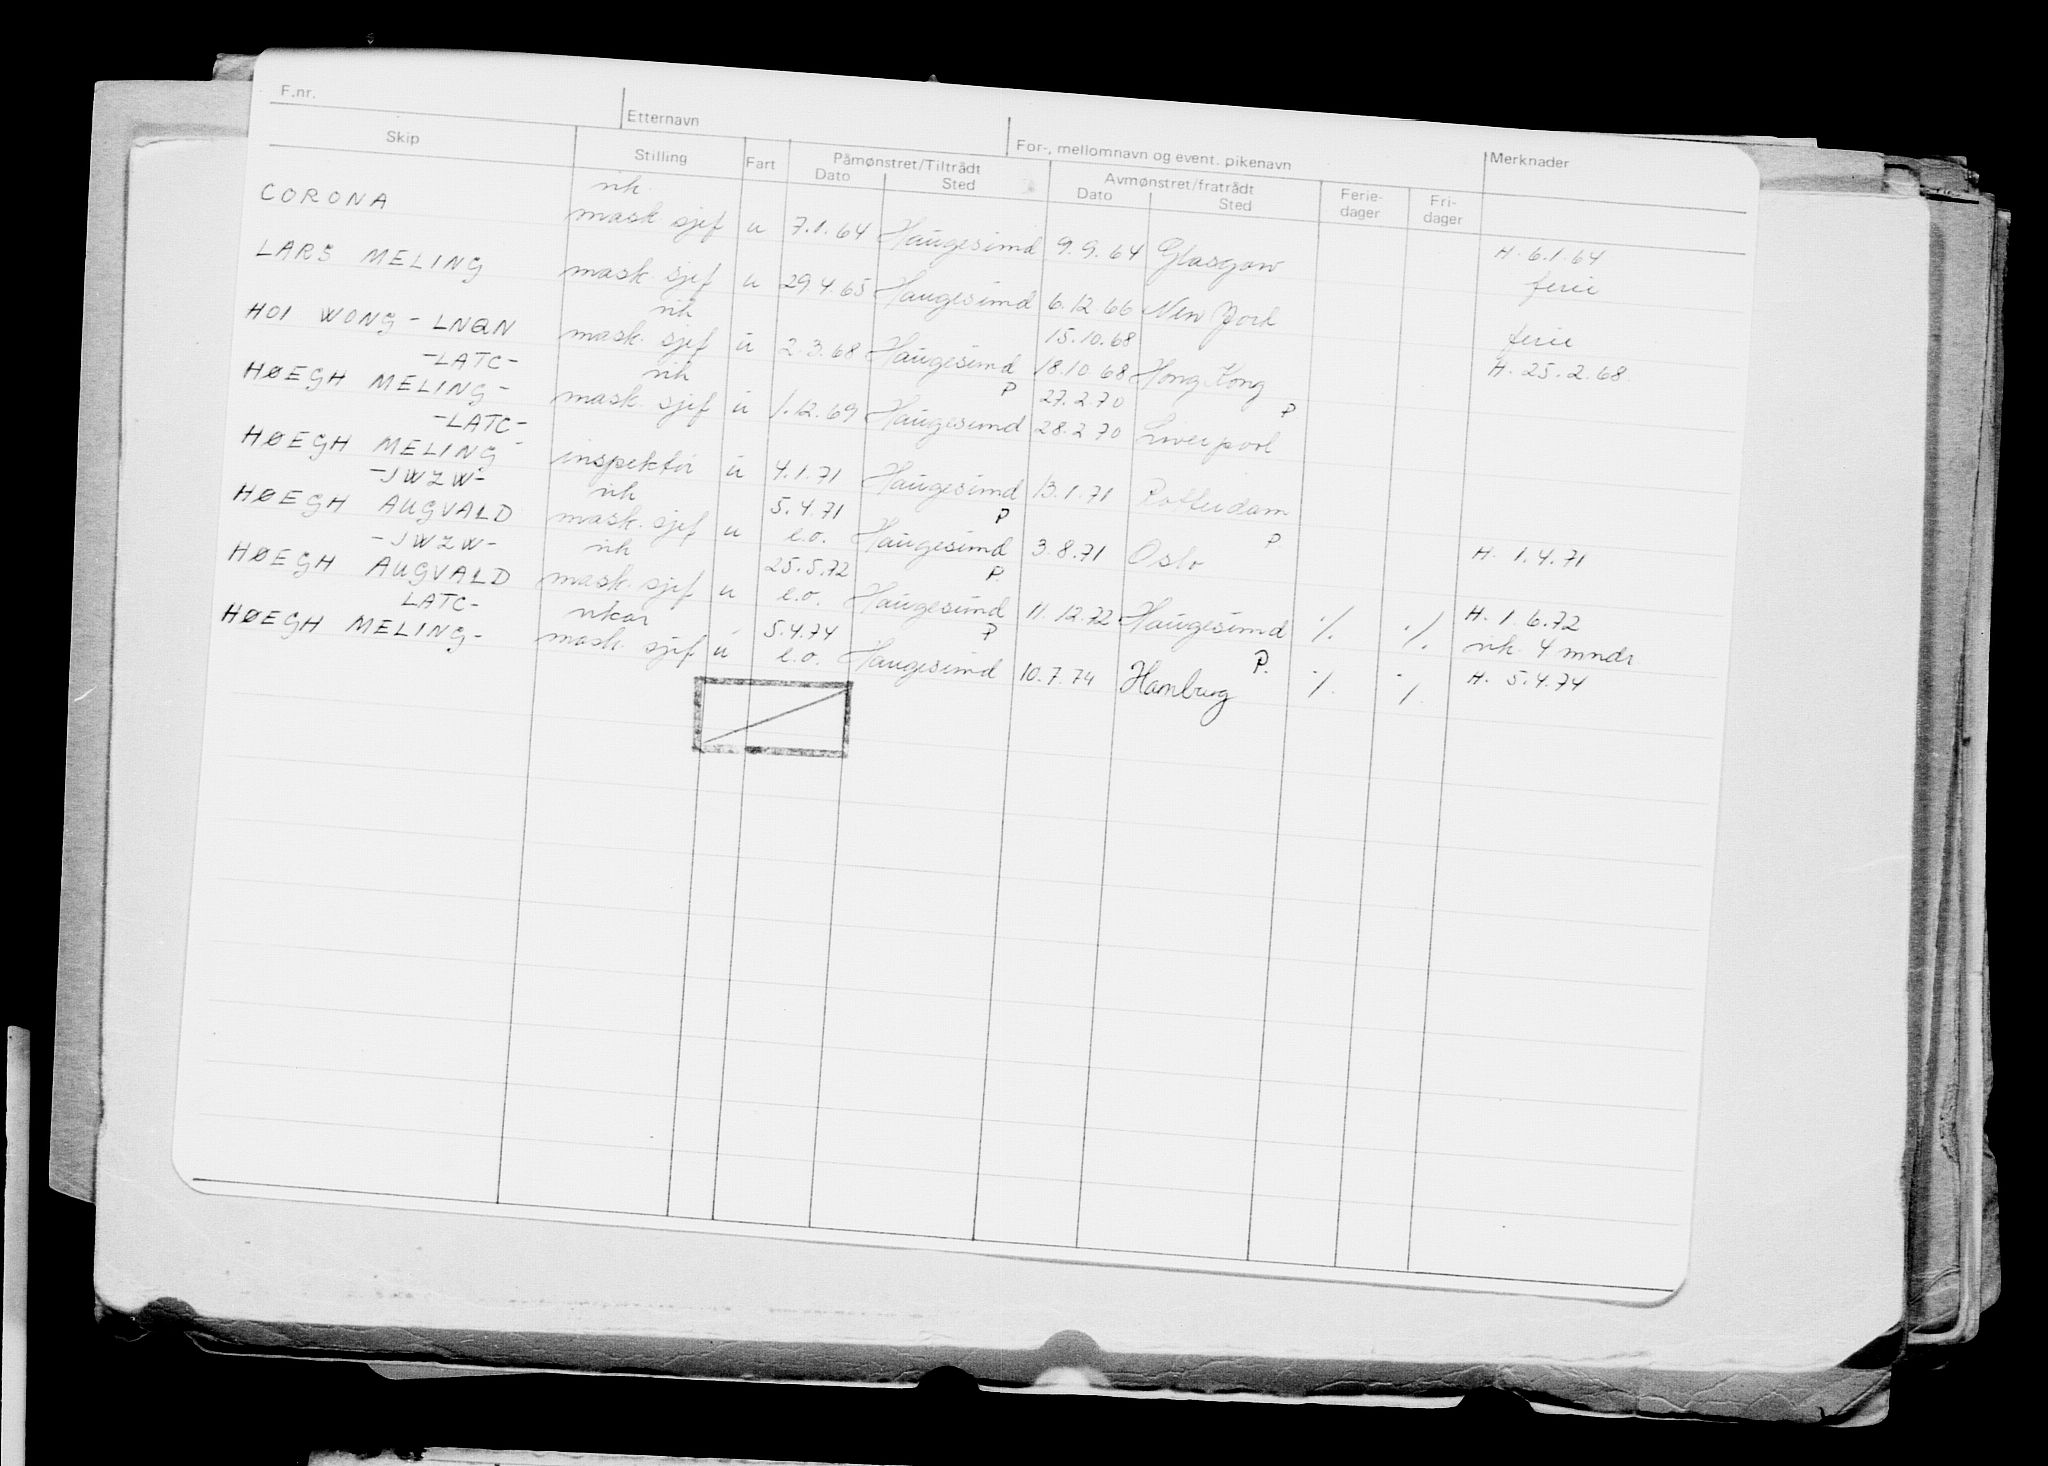 F.nr. Etternavn For-, mellomnavn og event. pikenavn Merknader
Skip Stilling Fart Påmønstret/Tiltrådt Avmønstret/fratrådt Ferie- Fri-
Dato Sted Dato Sted dager dager
vik.
CORONA mask. sjef u 7.1.64 Haugesund 9.9.64 Glasgow H. 6.1.64
ferie
LARS MELING mask. sjef u 29.4.65 Haugesund 6.12.66 New York ferie
vik 15.10.68
HOI WONG - LNQN mask. sjef u 2.3.68 Haugesund 18.10.68 Hong Kong H. 25.2.68.
-LATC- vik P 27.2.70 P
HØEGH MELING- mask. sjef u 1.12.69 Haugesund 28.2.70 Liverpool
-LATC-
HØEGH MELING inspektør u 4.1.71 Haugesund 13.1.71 Rotterdam
-JWZW- vik 5.4.71 P P.
HØEGH AUGVALD mask. sjef u e.o. Haugesund 3.8.71 Oslo H. 1.4.71
-JWZW- vik 25.5.72 P.
HØEGH AUGVALD mask. sjef u e.o. Haugesund 11.12.72 Haugesund ./. ./. H. 1.6.72
vik. 4 mndr
LATC- vikar 5.4.74 P P.
HØEGH MELING- mask. sjef u e.o. Haugesund 10.7.74 Hamburg ./. ./. H. 5.4.74